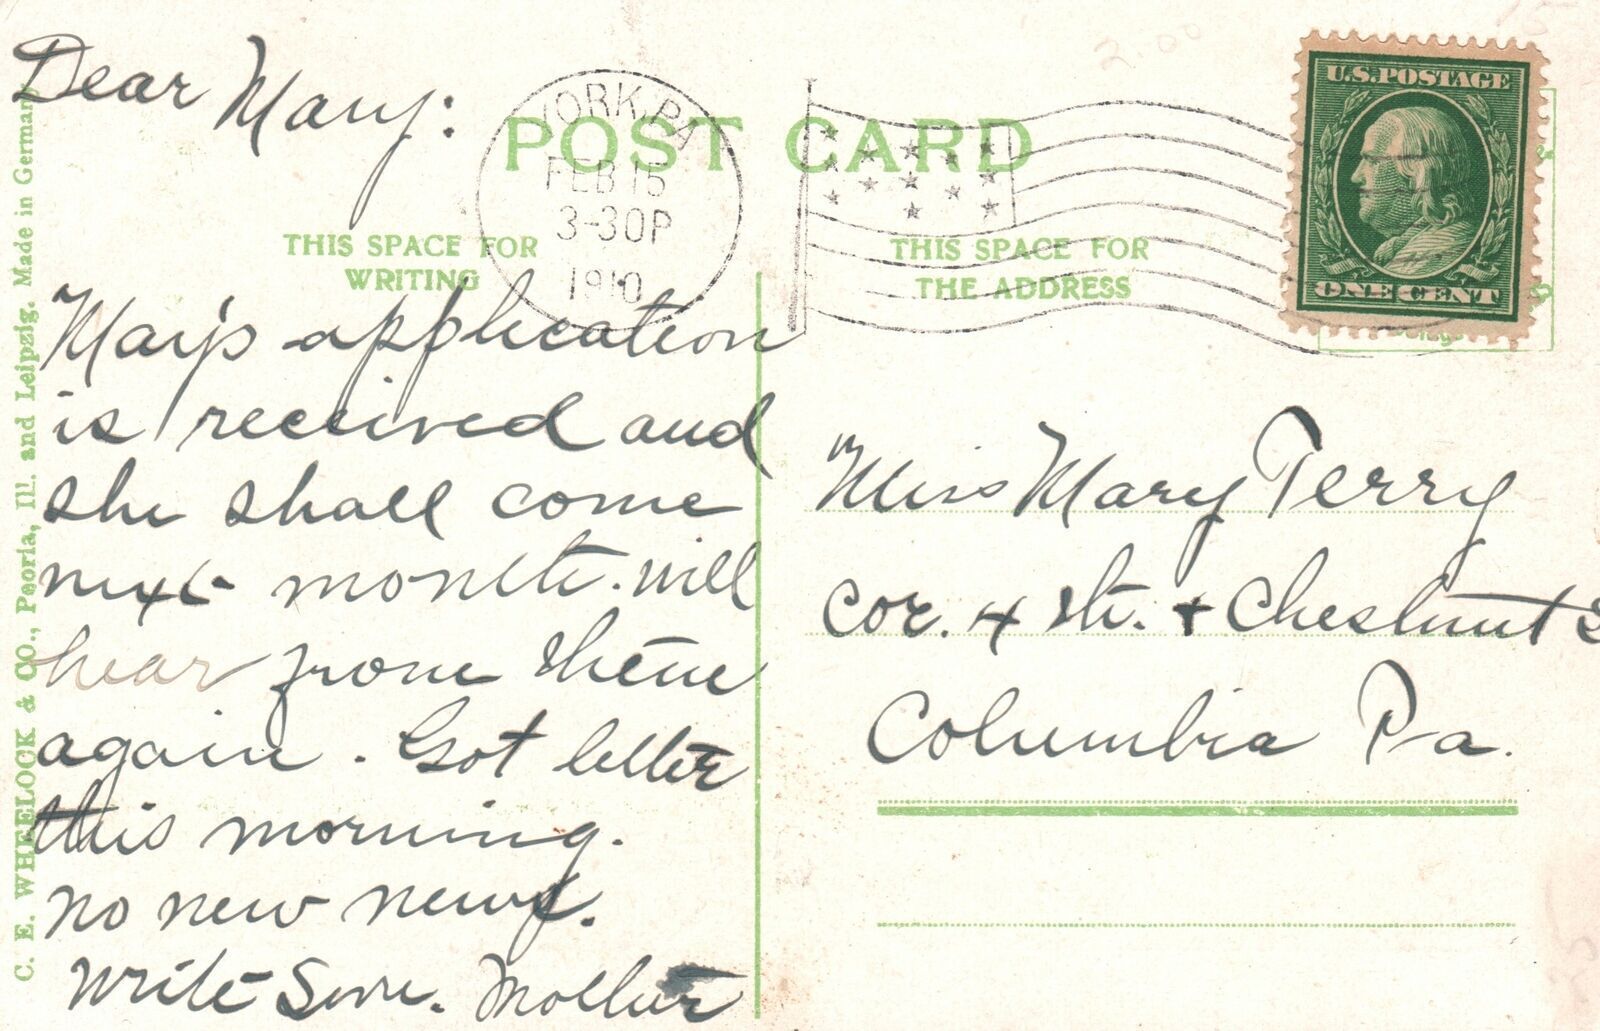 Dear Mary:
POST CARD
YORK, PA
FEB 15
3-30P
1910
U.S. POSTAGE
ONE CENT
THIS SPACE FOR
WRITING
THIS SPACE FOR
THE ADDRESS
May's application
is received and
she shall come
next month. will
hear from them
again. Got letter
this morning.
no new news.
Write Soon. Mother
Miss Mary Terry
Cor. 4 th. + Chestnut S
Columbia Pa.
C. E. WHEELOCK & CO., Peoria, Ill. and Leipzig. Made in Germany
2.00